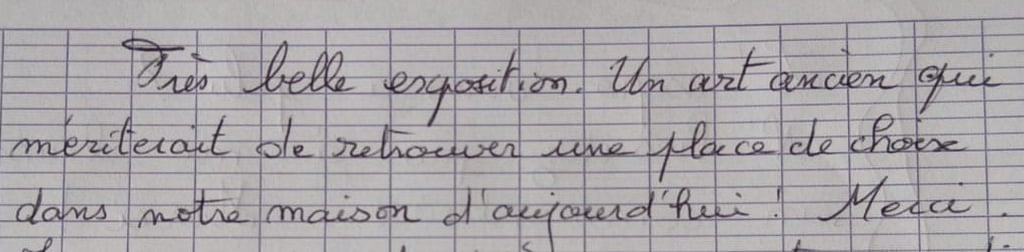 Très belle exposition. Un art ancien qui
mériterait de retrouver une place de choix
dans notre maison d'aujourd'hui! Merci.